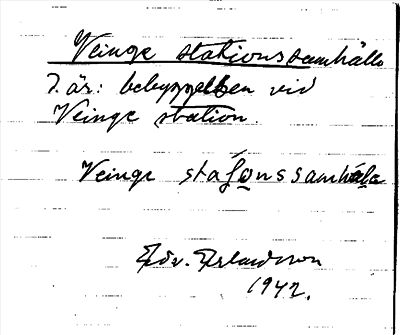 Veinge stationssamhälle
d.är: bebyggelsen vid
Veinge station.
Veinge stašonssamhäle
Edv. Erlandsson
1942.